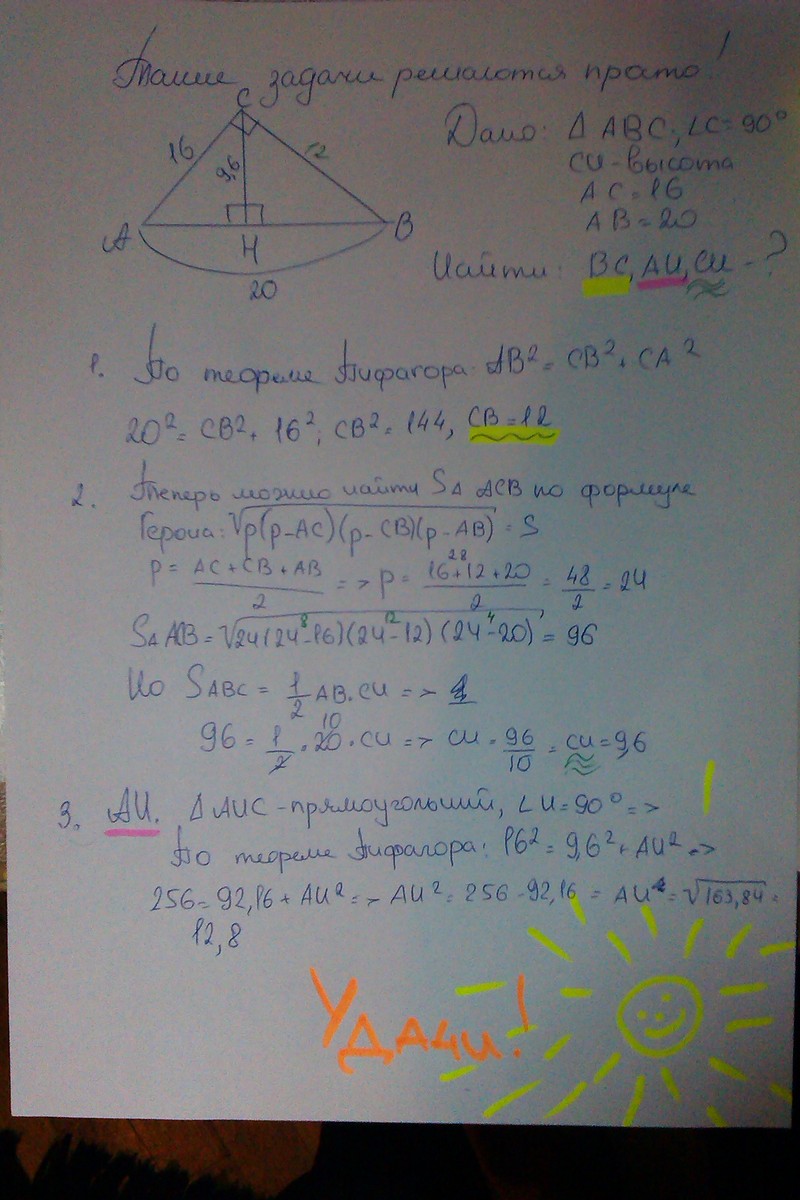 Такие задачи решаются просто!
C
16
9,6
12
A
H
B
20
Дано: Δ ABC, ∠C=90°
CH-высота
AC=16
AB=20
Найти: BC, AH, CH -?
1. По теореме Пифагора: AB² = CB² + CA²
20² = CB² + 16²; CB² = 144, CB = 12
2. Теперь можно найти SΔ ACB по формуле
Герона: √p(p-AC)(p-CB)(p-AB) = S
p = (AC+CB+AB)/2 => p = (16+12+20)/2 = 48/2 = 24
28
SΔ ACB = √24(24-16)(24-12)(24-20) = 96
8 12 4
Но SABC = 1/2 AB·CH =>
10
96 = 1/2 · 20 · CH => CH = 96/10 = CH = 9,6
3. AH. ΔAHC - прямоугольный, ∠H = 90° =>
По теореме Пифагора: 16² = 9,6² + AH² =>
256 = 92,16 + AH² => AH² = 256 - 92,16 = AH = √163,84 =
12,8
Удачи!